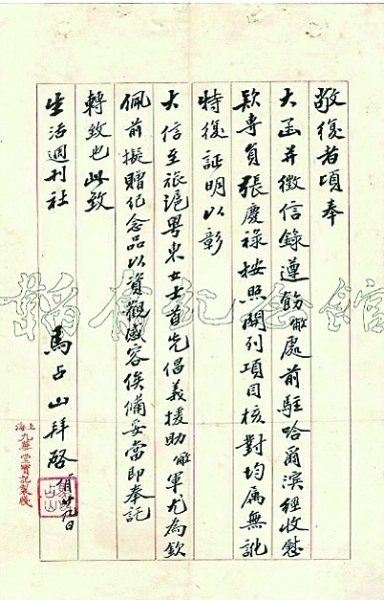 敬復者頃奉
大函并徵信錄遵飭敝處前駐哈爾濱經收慰
款專員張慶祿按照開列項目核對均屬無訛
特復証明以彰
大信至旅滬粵東女士首先倡義援助敝軍尤為欽
佩前擬贈紀念品以資觀感容俟備妥當即奉託
轉致也此致
生活週刊社
馬占山拜啓
月廿九日
上海九華堂寶記製牋
韜奮紀念館